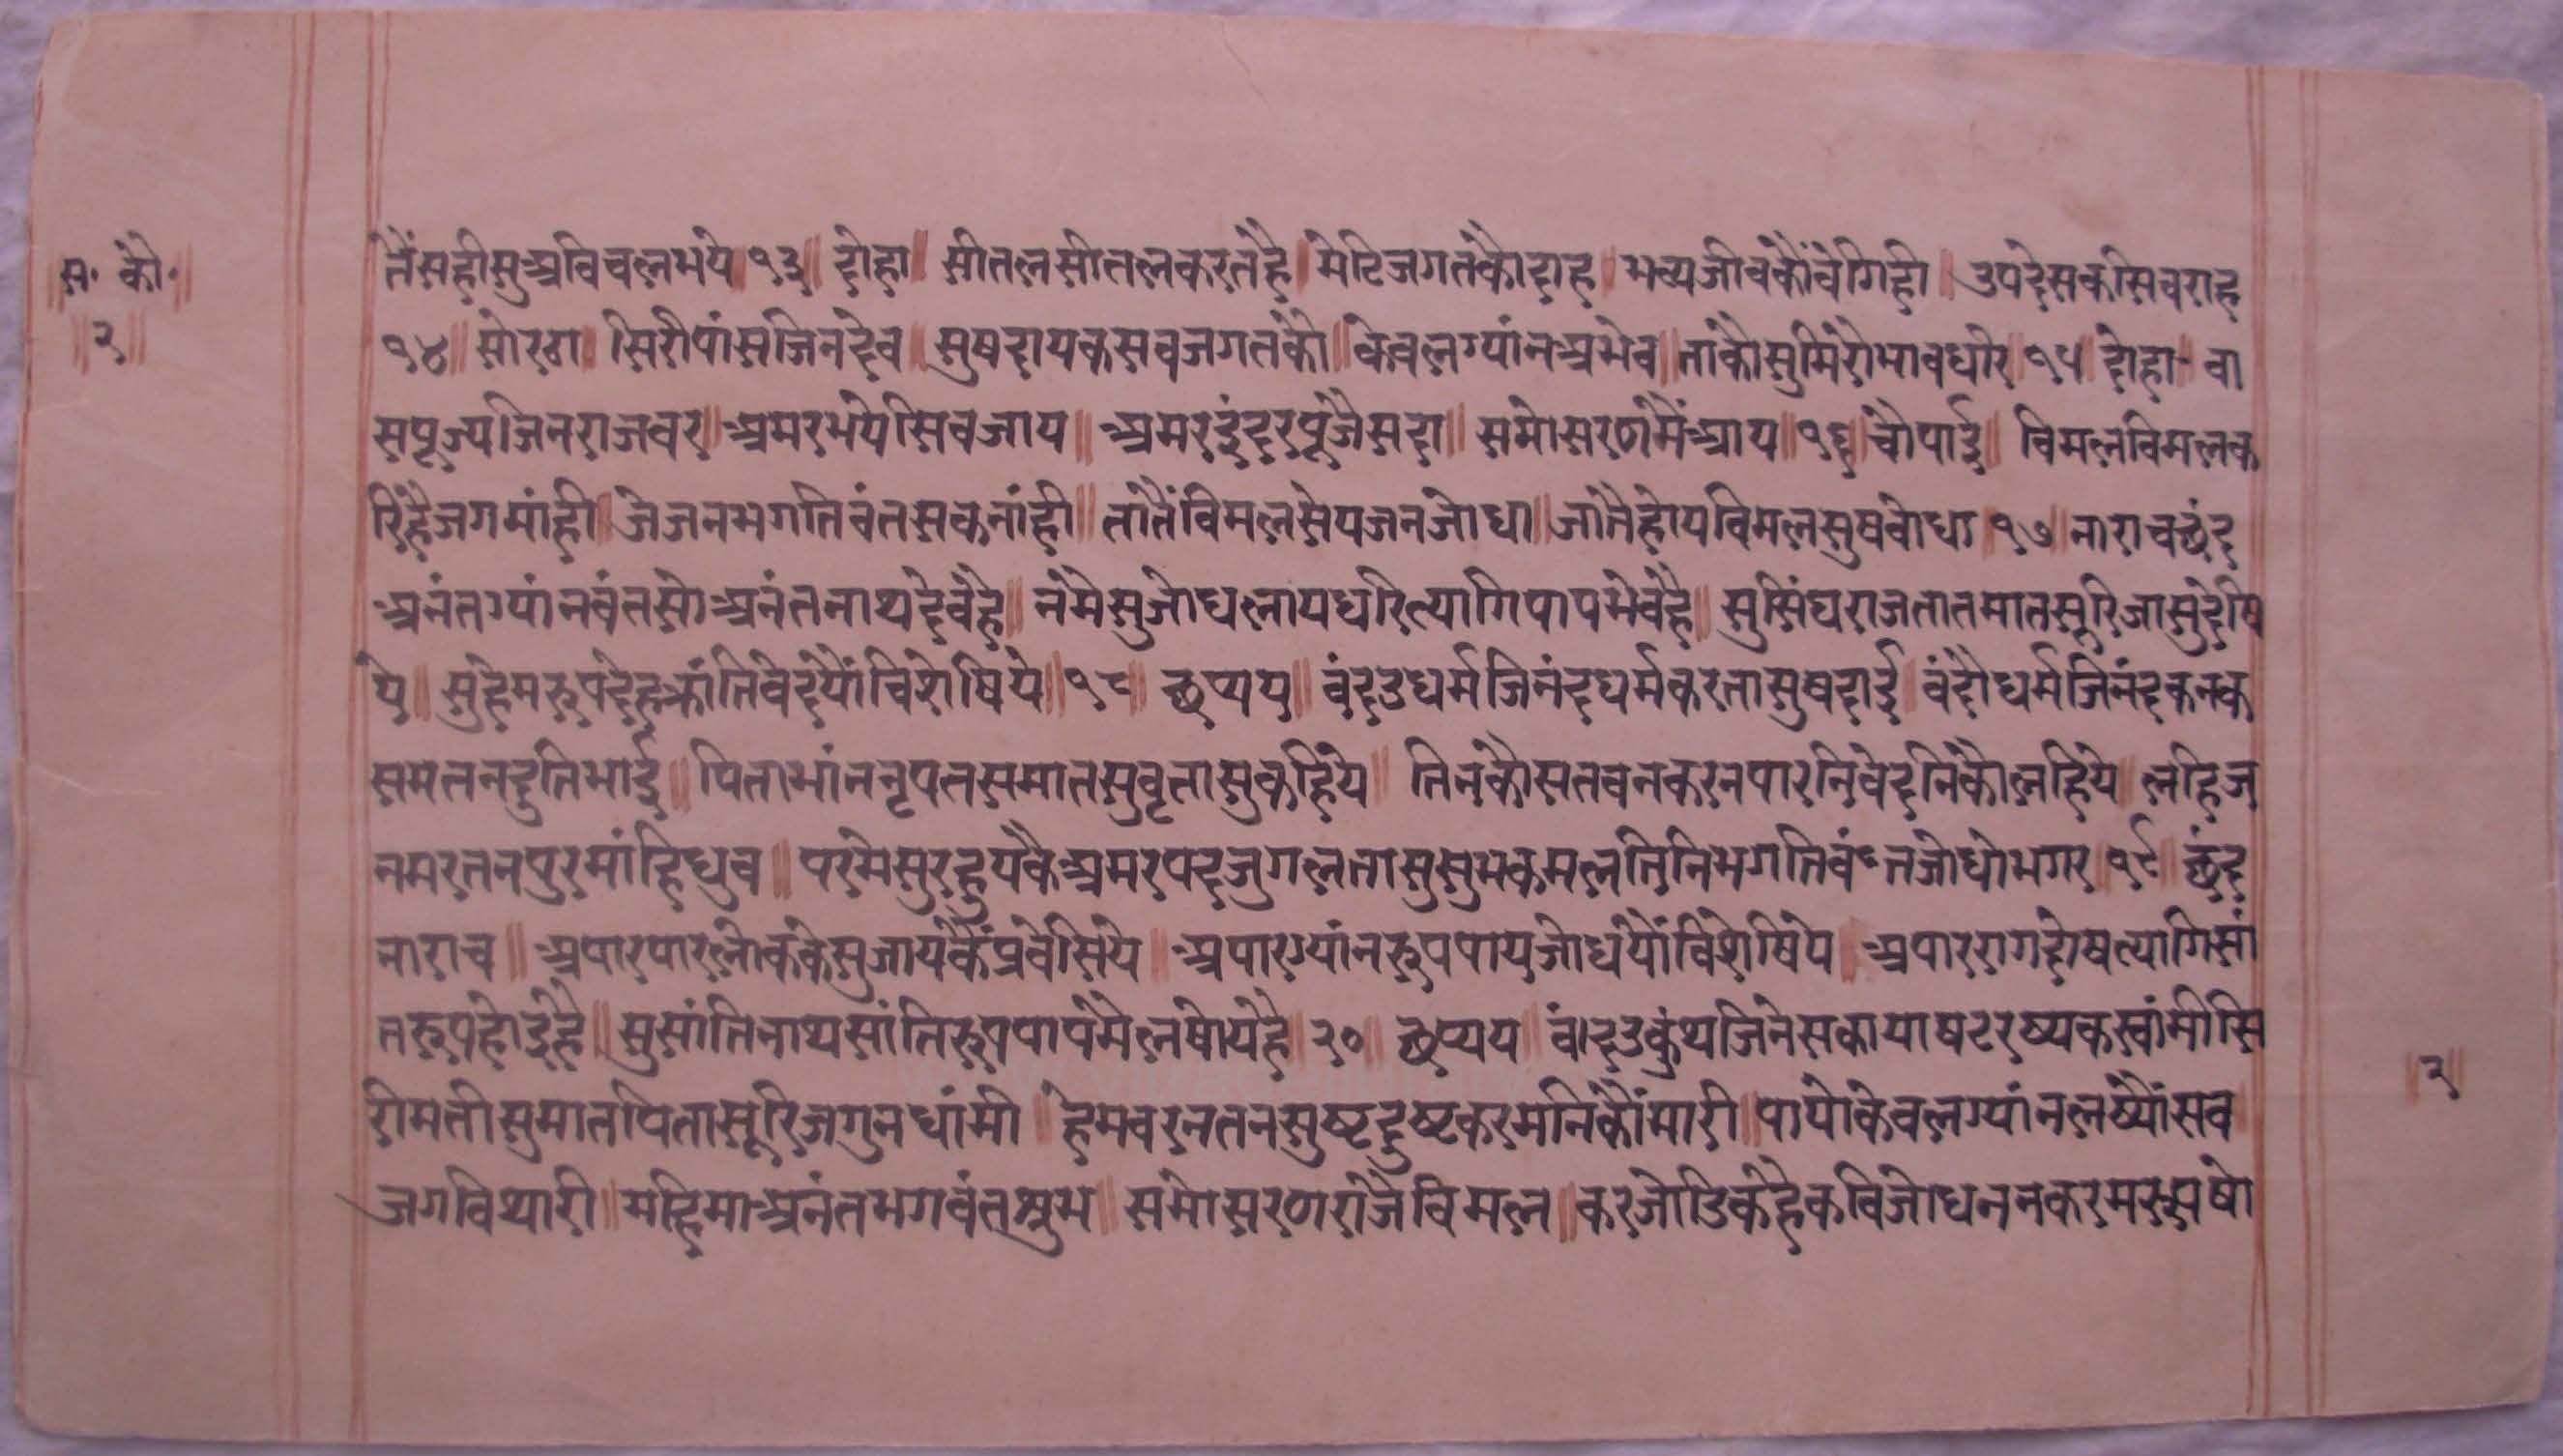 स॰ कौ॰
२
तैंसहीसुअविचलभये १३॥ दोहा॥ सीतलसीतलकरतहै॥ मेटिजगतकौदाह॥ भव्यजीवकौंवेगिही॥ उपदेसकीसिवराह
१४॥ सोरठा॥ सिरीपांसजिनदेव॥ सुषदायकसवजगतकौ॥ केवलग्यांनअभेव॥ ताकौसुमिरोभावधरि॥ १५॥ दोहा॥ वा
सपूज्यजिनराजवर॥ अमरभयेसिवजाय॥ अमरइंदरपूजैसदा॥ समोसरणमैंआय॥ १६॥ चौपाई॥ विमलविमलक
रिहैजगमांही॥ जेजनभगतिवंतसकनांही॥ तातैंविमलसेयजनजोधा॥ जातैहोयविमलसुषवोधा॥ १७॥ नाराचछंद
अनंतग्यांनवंतसोअनंतनाथदेवहै॥ नमेसुजोधलायधरित्यागिपापमेवहै॥ सुसिंघराजतातमातसूरिजासुदेषि
ये॥ सुहेमरुपदेहक्रांतिवेदयौंविशेषिये॥ १८॥ छप्पय॥ वंदउधर्मजिनंदधर्मकरतासुषदाई॥ वंदौधर्मजिनंदकनक
समतनदुतिभाई॥ पिताभांननृपतसमातसुवृतासुकहिये॥ तिनकौसतवनकरनपारनिवेदनिकौलहिये॥ लहिज
नमरतनपुरमांहिधुव॥ परमेसुरहुयकैअमरपदजुगलतासुसुभकमलतिनिभगतिवंतजोधोभगर॥ १९॥ छंद
नाराच॥ अपारपारलोककेसुजायकैंप्रवेसिये॥ अपारग्यांनरुपपायजोधयौंविशेषिये॥ अपाररागदोषत्यागिसां
तरुपहोइहै॥ सुसांतिनाथसांतिरुपपापमैलषोयहै॥ २०॥ छप्पय॥ वांदउकुंथजिनेसकायाषटरष्यकस्वांमीसि
रीमतीसुमातपितासूरिजगुनधांमी॥ हेमवरनतनसुष्टदुष्टकरमनिकौंमारी॥ पायोकेवलग्यांनलष्यौंसव
जगविथारी॥ महिमाअनंतभगवंतशुभ॥ समोसरणराजैविमल॥ करजोडिकहैकविजोधननकरमरुपषो
२